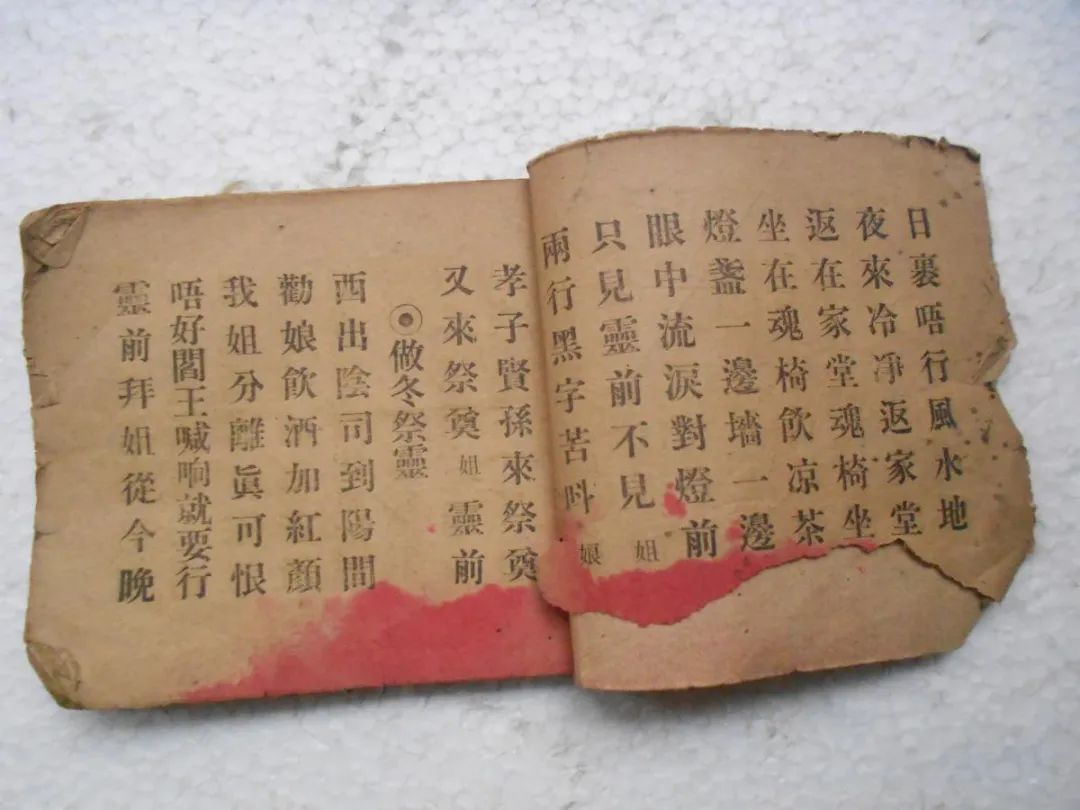 日裏唔行風水地
夜來冷凈返家堂
返在家堂魂椅坐
坐在魂椅飲凉茶
燈盞一邊墻一邊
眼中流淚對燈前
只見靈前不見姐
兩行黑字苦呌娘
孝子賢孫來祭奠
又來祭奠姐靈前
⦿做冬祭靈
西出陰司到陽間
勸娘飲酒加紅顏
我姐分離眞可恨
唔好閻王喊晌就要行
靈前拜姐從今晚